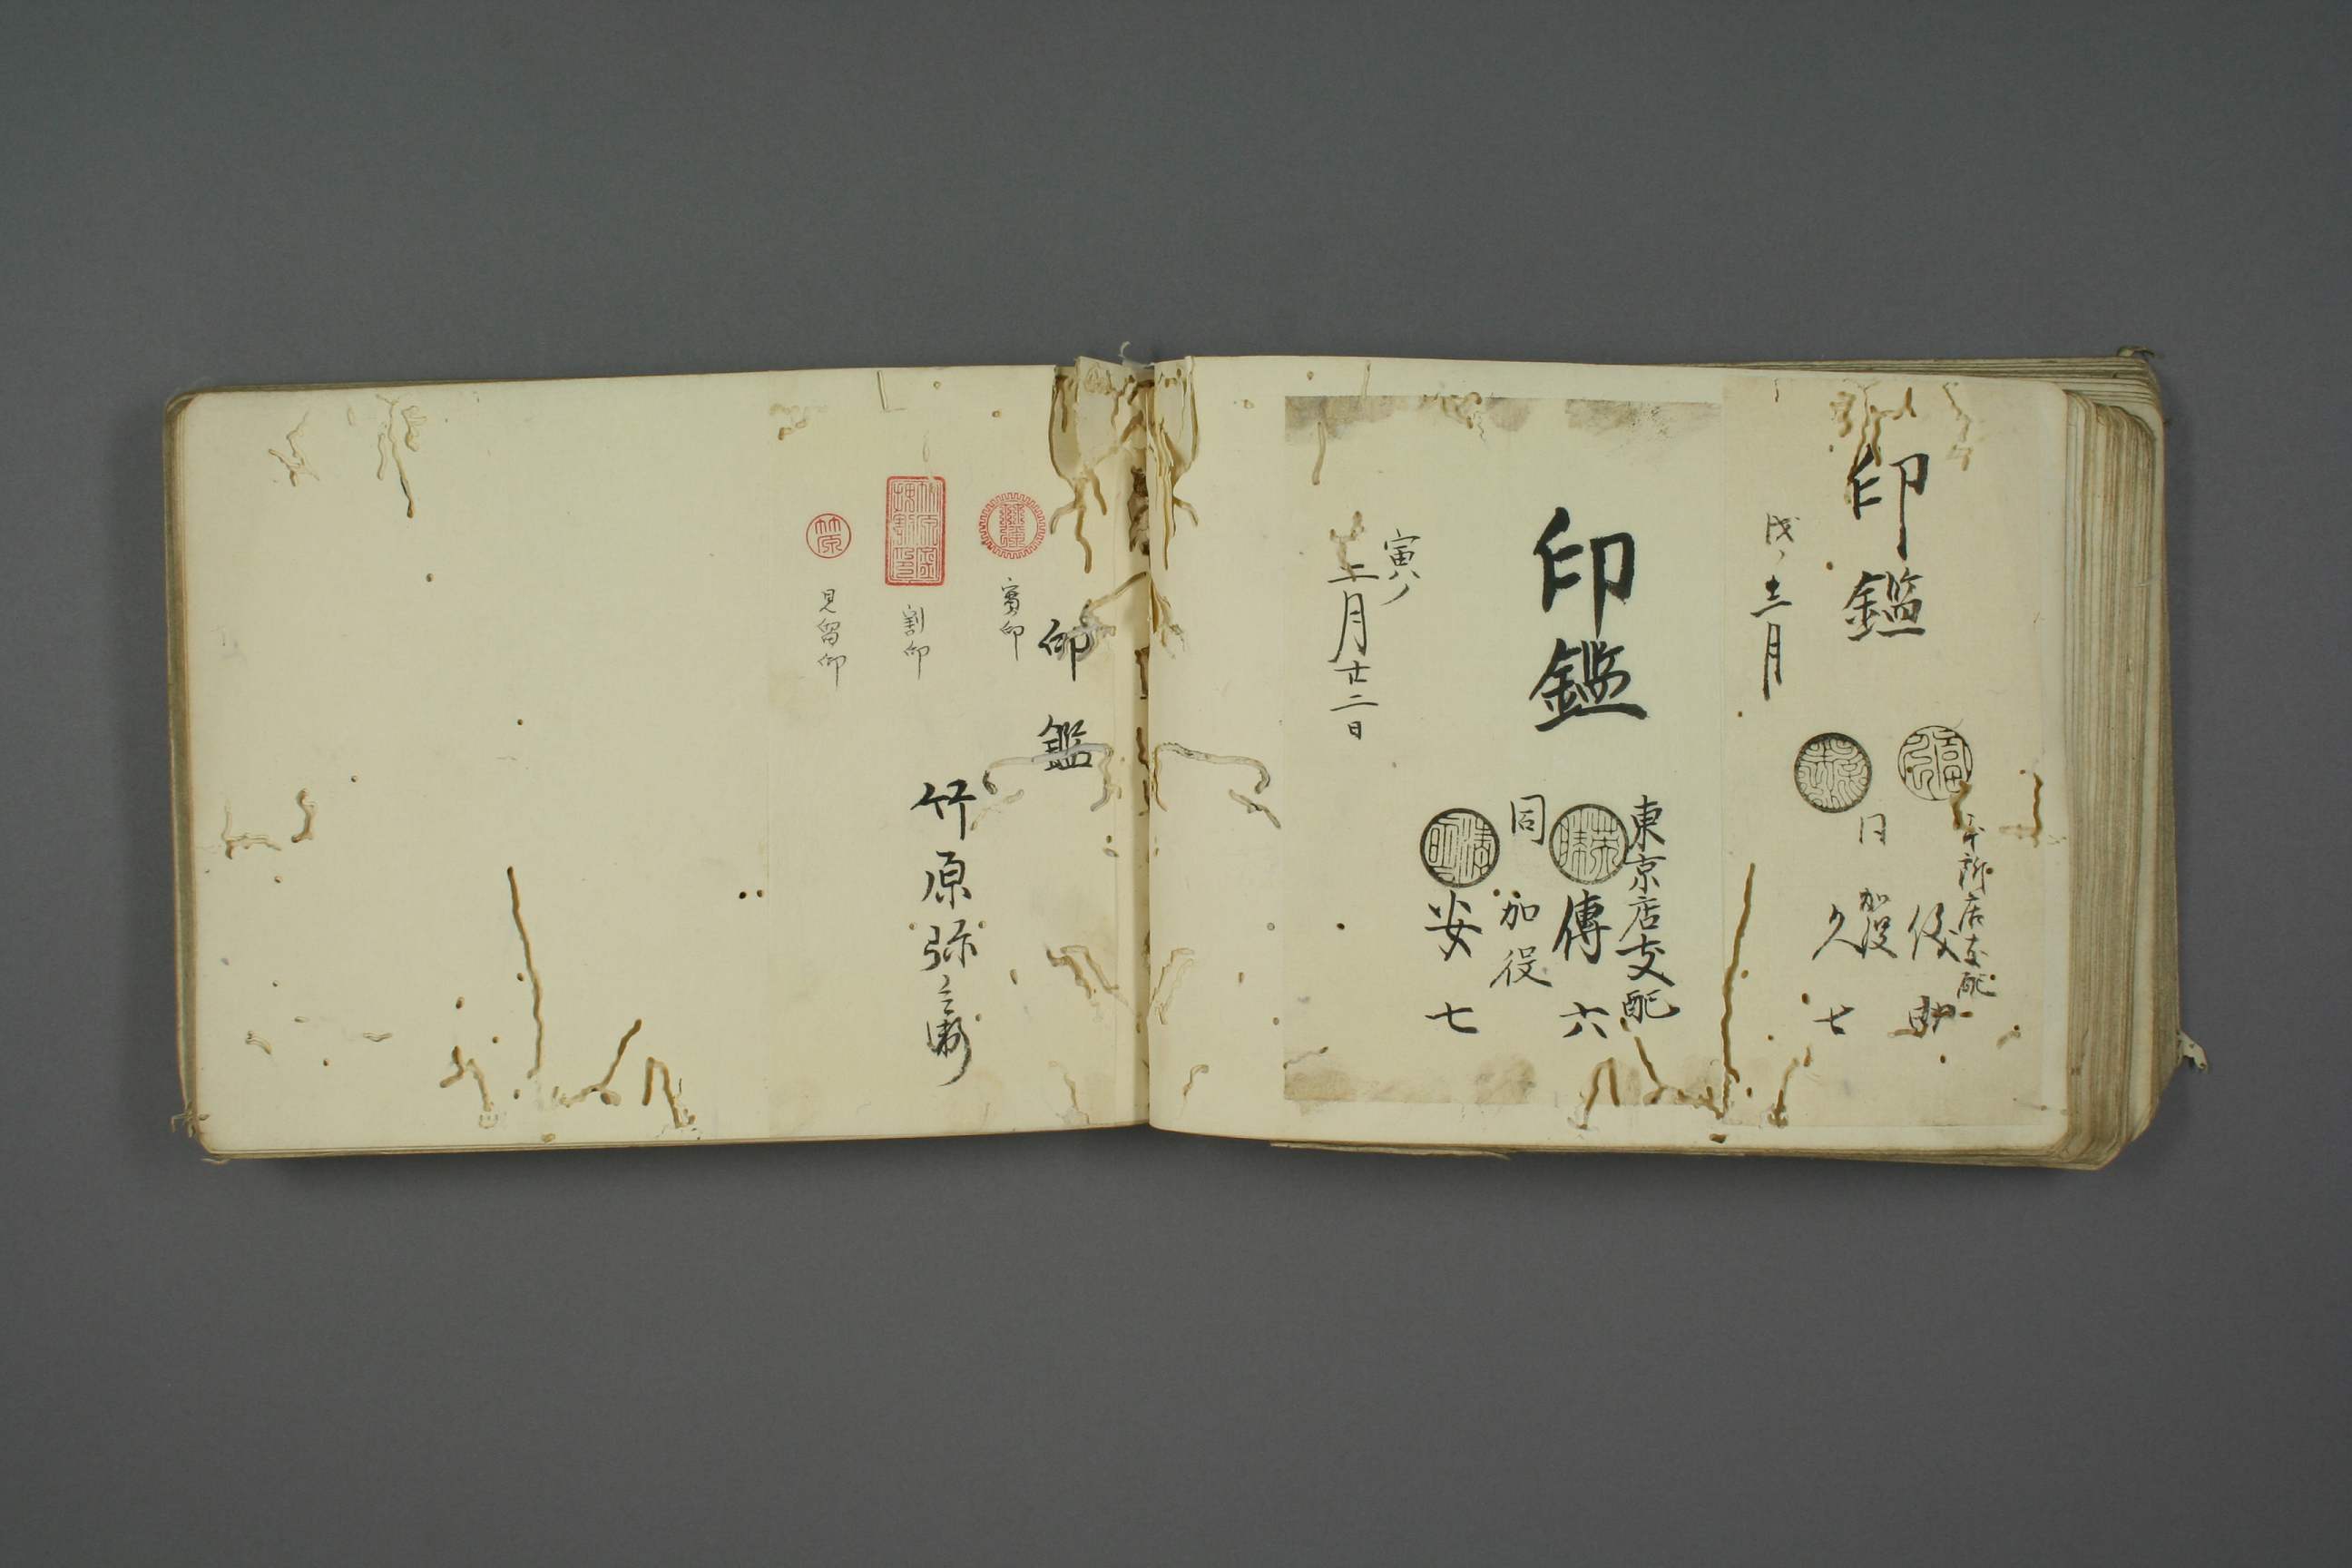 印鑑
店支配
同
加役
久七
戌ノ十二月
印鑑
東京店支配
傳六
同
加役
安七
寅ノ
十二月廿二日
印鑑
実印
割印
見留印
竹原弥三郎